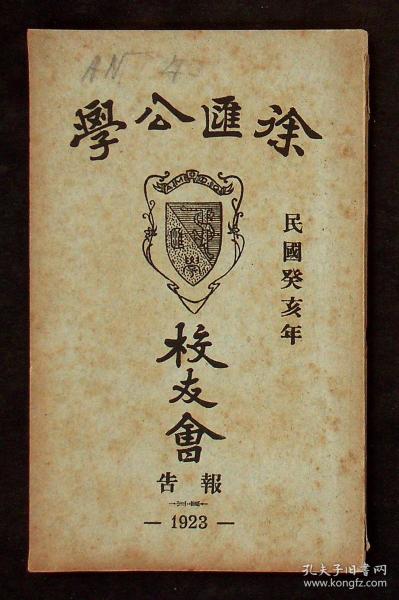 AN 40
徐匯公學
民國癸亥年
學
校友會
報告
— 1923 —
孔夫子旧书网
www.kongfz.com